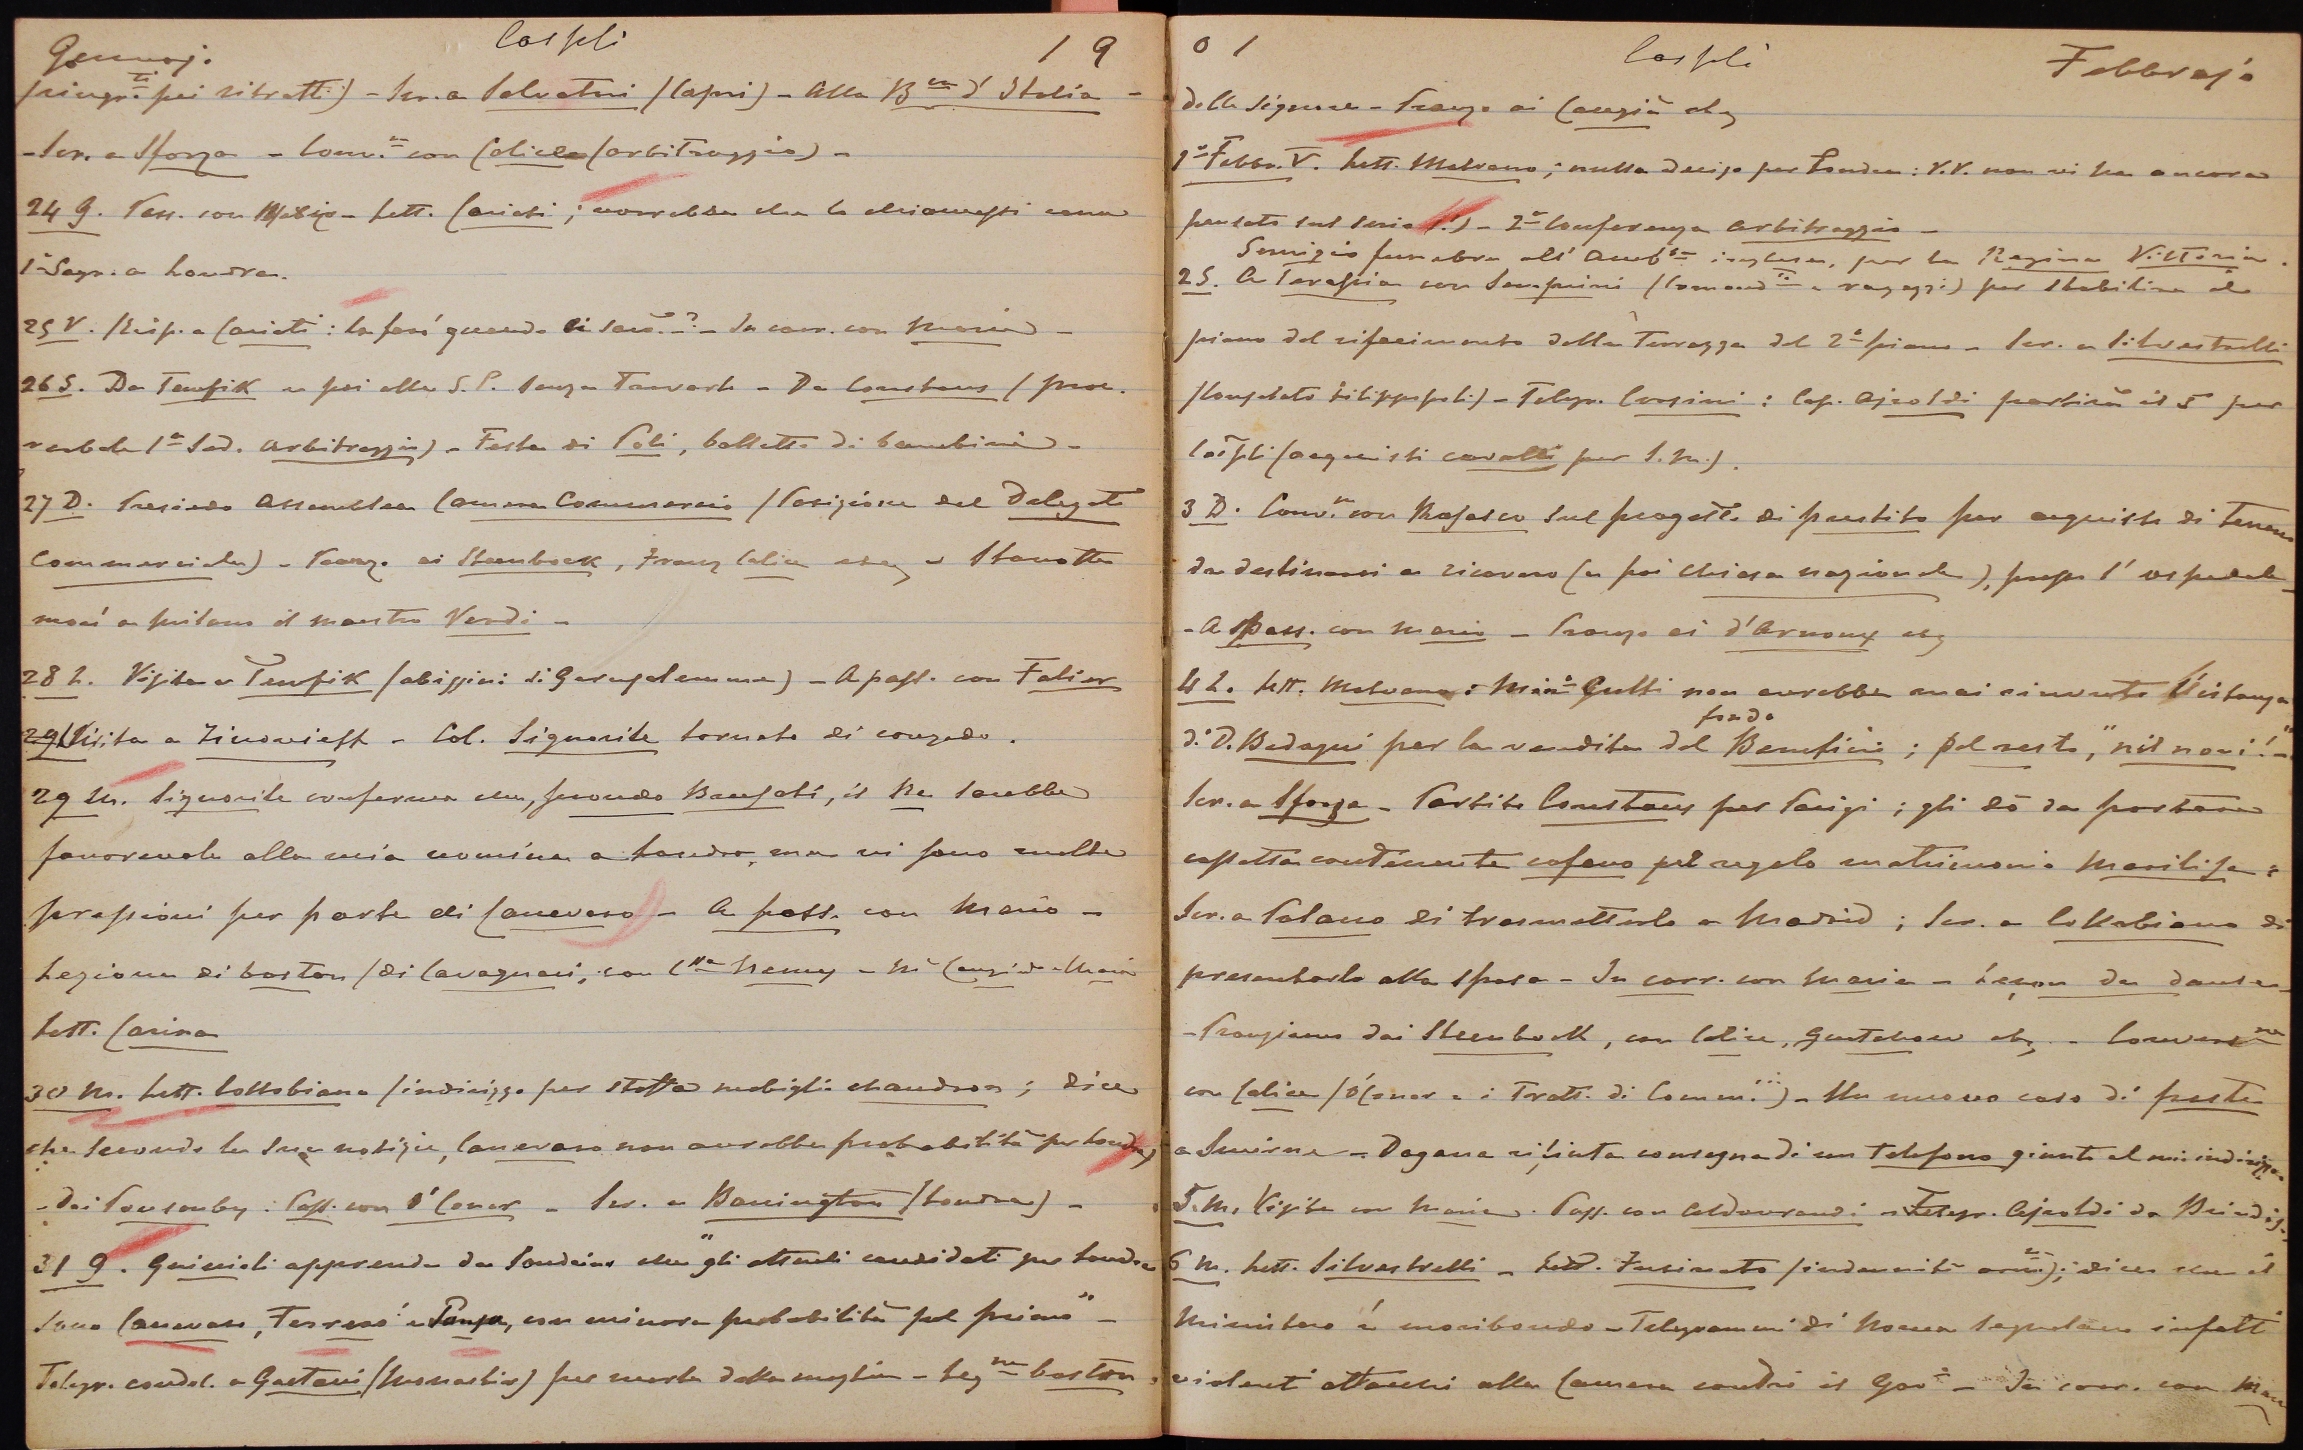 Gennaj. Cospli 19
pei ritratti) - Scr. a Salvatori (Capri) - Alla B.ca d'Italia -
- Scr. a Sforza - Conv.ne con Calice (arbitraggio) -
24 G. Pass. con - Lett. ; vorrebbe che lo chiamassi come
1° Segr. a Londra.
25 V. Risp. a : lo farò quando ci sarò..? - In carr. con Maria -
26 S. Da Tewfik e poi alla S.P. senza - Da Constans (proc.
verbale 1a Sed. arbitraggio) - Festa di Poli, balletto di bambini -
27 D. Presiedo Assemblea Camera Commercio (Posizione del Delegato
Commerciale) - Pranzo ai Steenbock, Franz, Calice etc - Stanotte
morì a Milano il maestro Verdi -
28 L. Visita a Tewfik (abissini di Gerusalemme) - A pass. con Falier
Visita a Zinovieff - Col. Signorile tornato di congedo.
29 M. Signorile conferma che, secondo , il Re sarebbe
favorevole alla mia nomina a Londra, ma vi sono molte
pressioni per parte di Canevaro - A pass. con Mario -
Lezione di boston (di Cavagnari, con C.ssa Nemes -
Lett. Carina
30 M. Lett. Collobiano (indirizzo per stoffa mobiglia chaudron; dice
che secondo le sue notizie, Canevaro non avrebbe probabilità per Londra)
- Dai Ponsonby: Pass. con O'Conor - Scr. a Barrington (Londra) -
31 G. apprende da che "gli attuali candidati per Londra
sono Canevaro, Ferrero e Pansa, con minore probabilità pel primo" -
Telegr. condol. a Gaetani (Monastir) per morte della moglie - Lez.ne boston,
01 Cospli Febbrajo
delle Signore - Pranzo ai Cangià etc
1° Febbr. V. Lett. Malvano; nulla deciso per Londra: V.V. non vi ha ancora
pensato sul serio (!) - 2a Conferenza arbitraggio -
Servizio funebre all'Amb.ta inglese, per la Regina Vittoria.
2 S. A Terapia con Semprini ( e ragazzi) per stabilire il
piano del rifacimento della Terrazza del 2° piano - Scr. a Silvestrelli
(Consolato Filippopoli) - Telegr. : Cap. Ajroldi partirà il 5 per
Cospli (acquisti cavalli per S.M.).
3 D. Conv.ne con sul progetto di prestito per acquisto di terreno
da destinarsi a ricovero (e poi chiesa nazionale), presso l'ospedale -
- A pass. con Mario - Pranzo ai d'Arnoux etc
4 L. Lett. Malvano: Min.o Gulli non avrebbe mai ricevuto l'istanza
di D. per la vendita del fondo Benefizi; pel resto, "nil novi!" -
Scr. a Sforza - Partito Constans per Parigi; gli dò da portare
cassetta contenente cofano pel regalo matrimonio Marilisa:
Scr. a di trasmetterlo a Madrid; Scr. a Collobiano di
presentarlo alla sposa - In carr. con Maria - Leçon de danse -
- Pranziamo dai Steenbock, con Calice, etc. - Convers.ne
con Calice (O'Conor e i Tratt. di Comm.) - Un nuovo caso di peste
a Smirne - Dogana rifiuta consegna di un telefono giunto al mio indirizzo
5 M. Visite con Maria. Pass. con Aldovrandi - Telegr. Ajroldi da Brindisi
6 M. Lett. Silvestrelli - Lett. Fusinato (indennità ); dice che il
Ministero è moribondo - Telegrammi di Roma segnalano infatti
violenti attacchi alla Camera contro il Gov.o - In carr. con